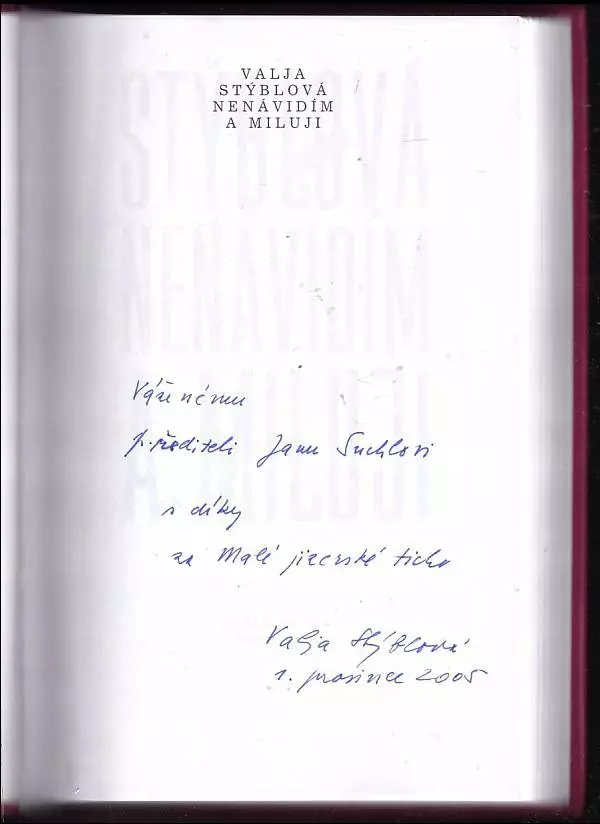 VALJA
STÝBLOVÁ
NENÁVIDÍM
A MILUJI
STÝBLOVÁ
NENÁVIDÍM
A MILUJI
Váženému
p. řediteli Janu Suchlovi
s díky
za Malé jizerské ticho
Valja Stýblová
1. prosince 2005